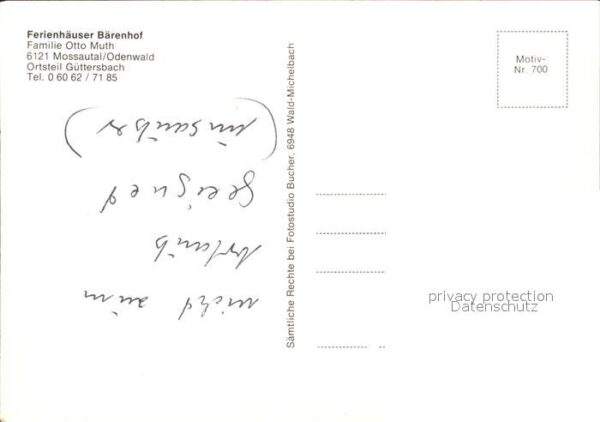 Ferienhäuser Bärenhof
Familie Otto Muth
6121 Mossautal/Odenwald
Ortsteil Güttersbach
Tel. 0 60 62 / 71 85
nicht zum
Urlaub
geeignet
(unsauber)
Sämtliche Rechte bei Fotostudio Bucher, 6948 Wald-Michelbach
Motiv-
Nr. 700
privacy protection
Datenschutz